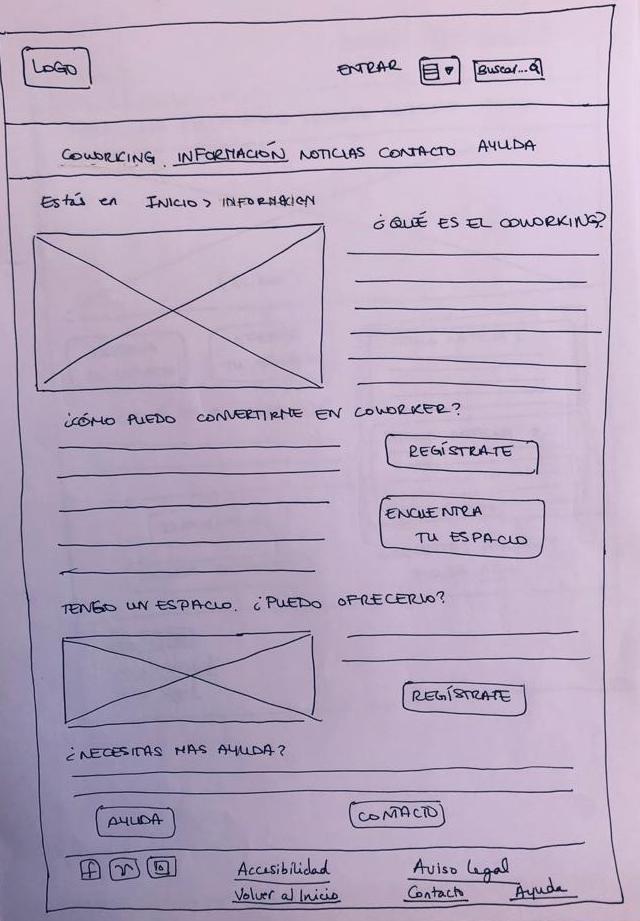 LOGO
ENTRAR
Buscar...
COWORKING INFORMACIÓN NOTICIAS CONTACTO AYUDA
Estás en INICIO > INFORMACION
¿QUÉ ES EL COWORKING?
¿CÓMO PUEDO CONVERTIRME EN COWORKER?
REGÍSTRATE
ENCUENTRA
TU ESPACIO
TENGO UN ESPACIO. ¿PUEDO OFRECERLO?
REGÍSTRATE
¿NECESITAS MAS AYUDA?
AYUDA
CONTACTO
f
Accesibilidad
Aviso legal
Volver al Inicio
Contacto
Ayuda